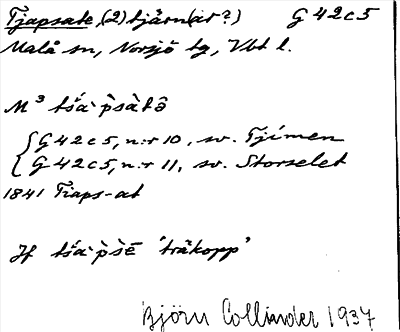 Tjapsate, (2) tjärn(ar?) G 42 c 5
Malå sn, Norsjö tg, Vbt l.
M³ tśa·p̀sàtê
G 42 c 5, n:r 10, sv. Tjímen
G 42 c 5, n:r 11, sv. Storselet
1841 Tiaps-at
Jf tśa·p̀sē 'träkopp'
Björn Collinder 1937